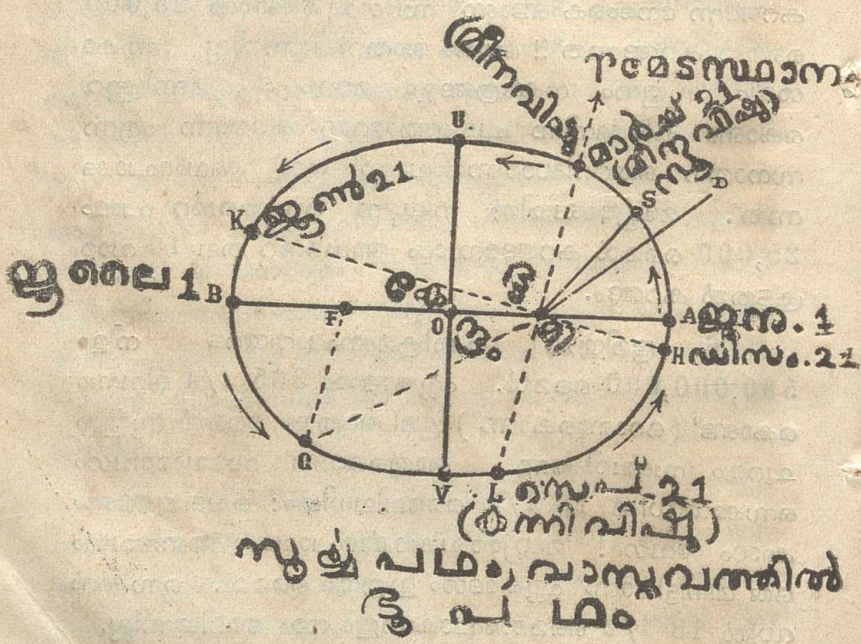 (മീനവിഷു
♈ മേടസ്ഥാനം
മാർച്ച് 21
(മീനവിഷു)
U
S
D
K ജൂൺ 21
ജൂലൈ 1 B
കേ
ഭൂ
F
O
ന്ദ്രം
മി
A ജനു. 1
H ഡിസം. 21
G
V
L സെപ്. 21
(കന്നിവിഷു)
സൂര്യപഥം, വാസ്തവത്തിൽ
ഭൂപഥം